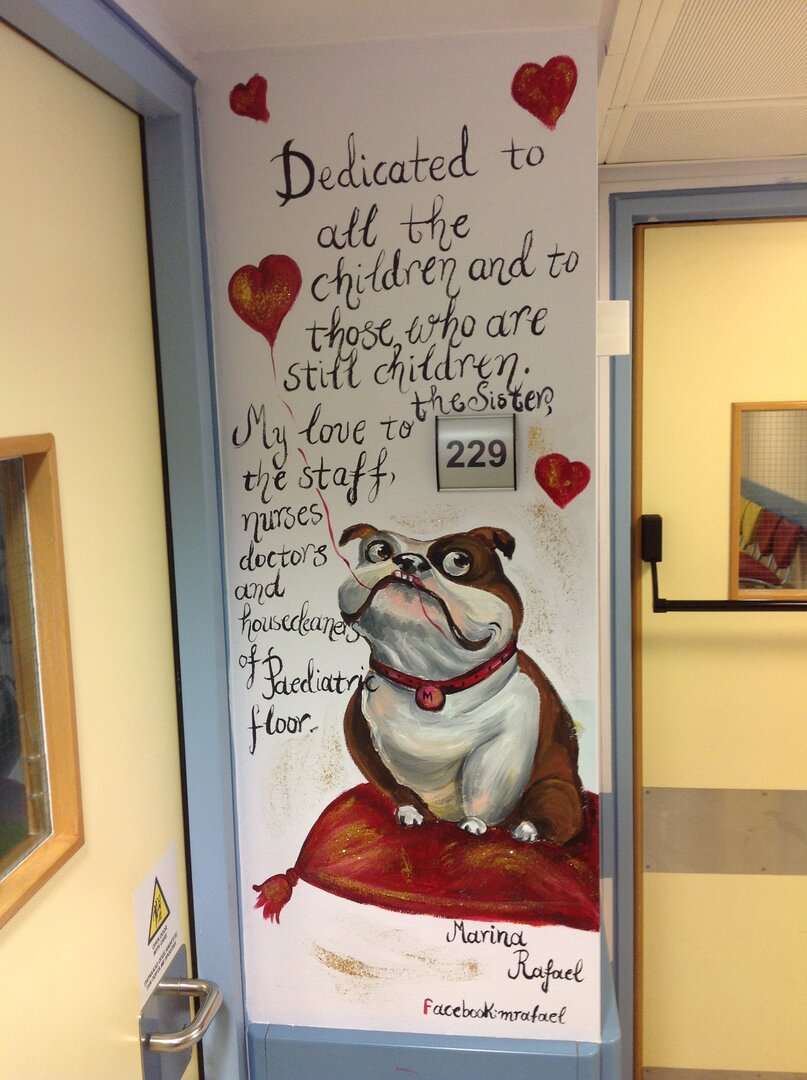 Dedicated to
all the
children and to
those, who are
still children.
the Sister,
My love to
229
the staff,
nurses
doctors
and
housecleaners
of Paediatric
floor.
M
Marina
Rafael
Facebook:mrafael